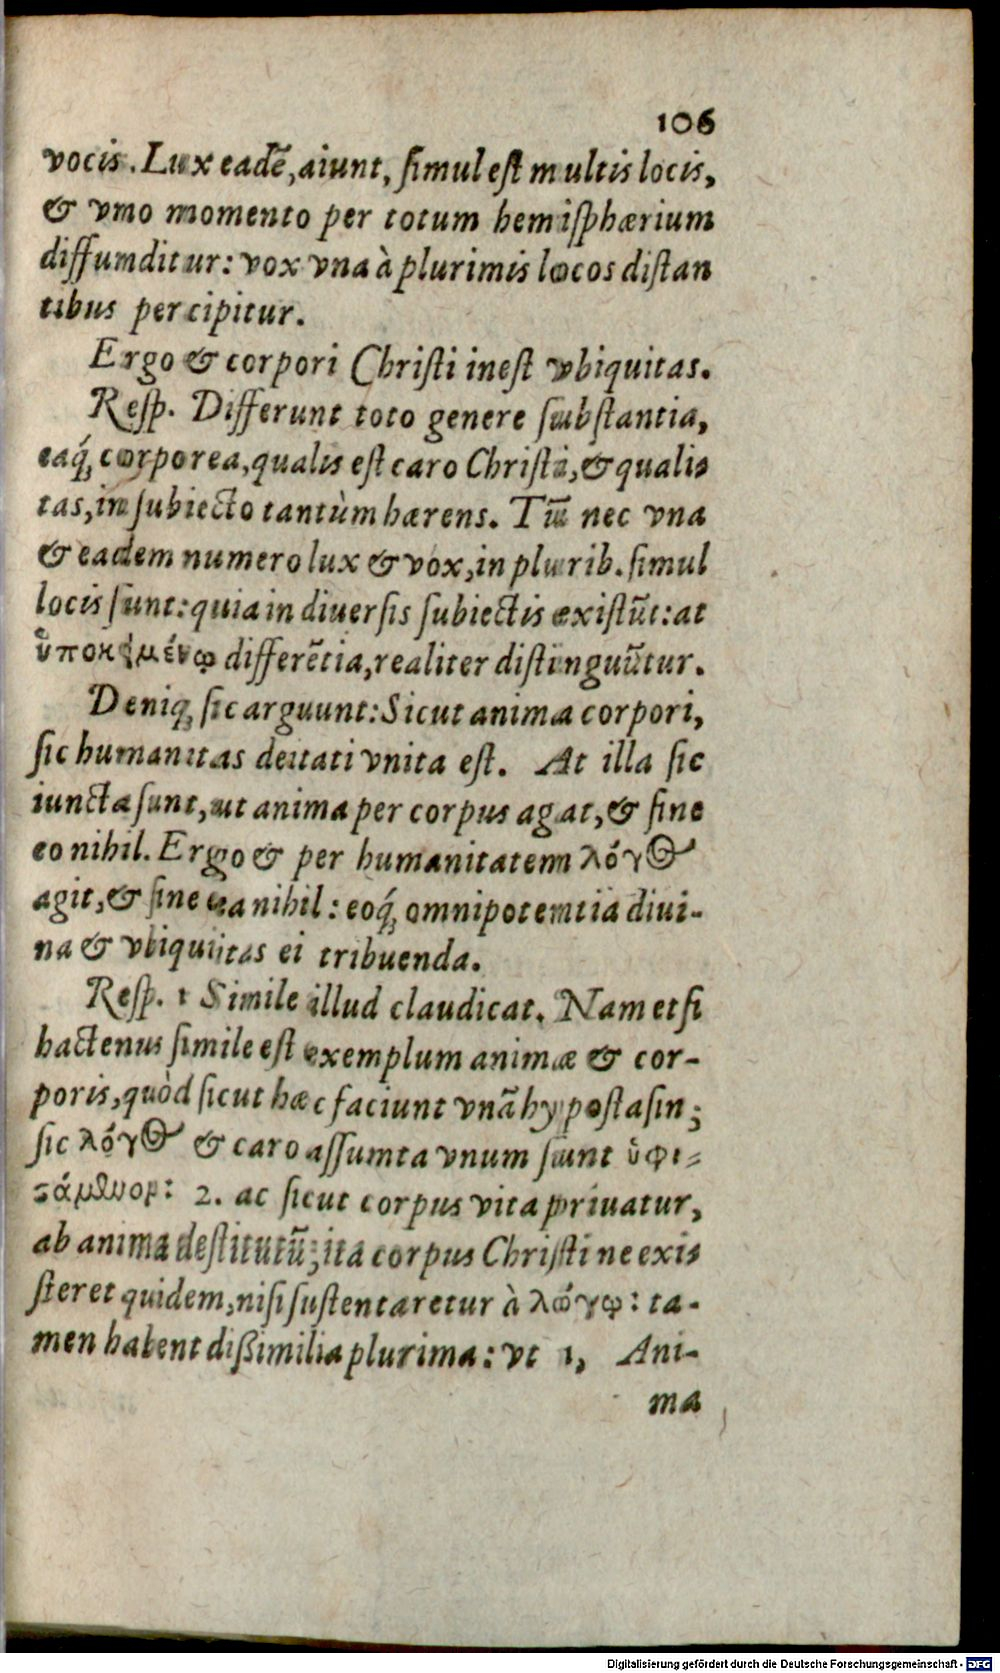 106
vocis. Lux eadē, aiunt, simul est multis locis,
& vno momento per totum hemisphærium
diffunditur: vox vna à plurimis locos distan
tibus percipitur.
Ergo & corpori Christi inest vbiquitas.
Resp. Differunt toto genere substantia,
eaq́; corporea, qualis est caro Christi, & qualis
tas, in subiecto tantùm hærens. Tū nec vna
& eadem numero lux & vox, in plurib. simul
locis sunt: quia in diuersis subiectis existūt: at
ὑποκειμένῳ differētia, realiter distinguūtur.
Deniq; sic arguunt: Sicut anima corpori,
sic humanitas deitati vnita est. At illa sic
iuncta sunt, ut anima per corpus agat, & sine
eo nihil. Ergo & per humanitatem λόγος
agit, & sine ea nihil: eoq́; omnipotentia diui-
na & vbiquitas ei tribuenda.
Resp. 1 Simile illud claudicat. Nam etsi
hactenus simile est exemplum animæ & cor-
poris, quòd sicut hæc faciunt vnā hypostasin;
sic λόγος & caro assumta vnum sunt ὑφι-
στάμενον: 2. ac sicut corpus vita priuatur,
ab anima destitutū; ita corpus Christi ne exis
steret quidem, nisi sustentaretur à λόγῳ: ta-
men habent dißimilia plurima: vt 1, Ani-
ma
Digitalisierung gefördert durch die Deutsche Forschungsgemeinschaft - DFG